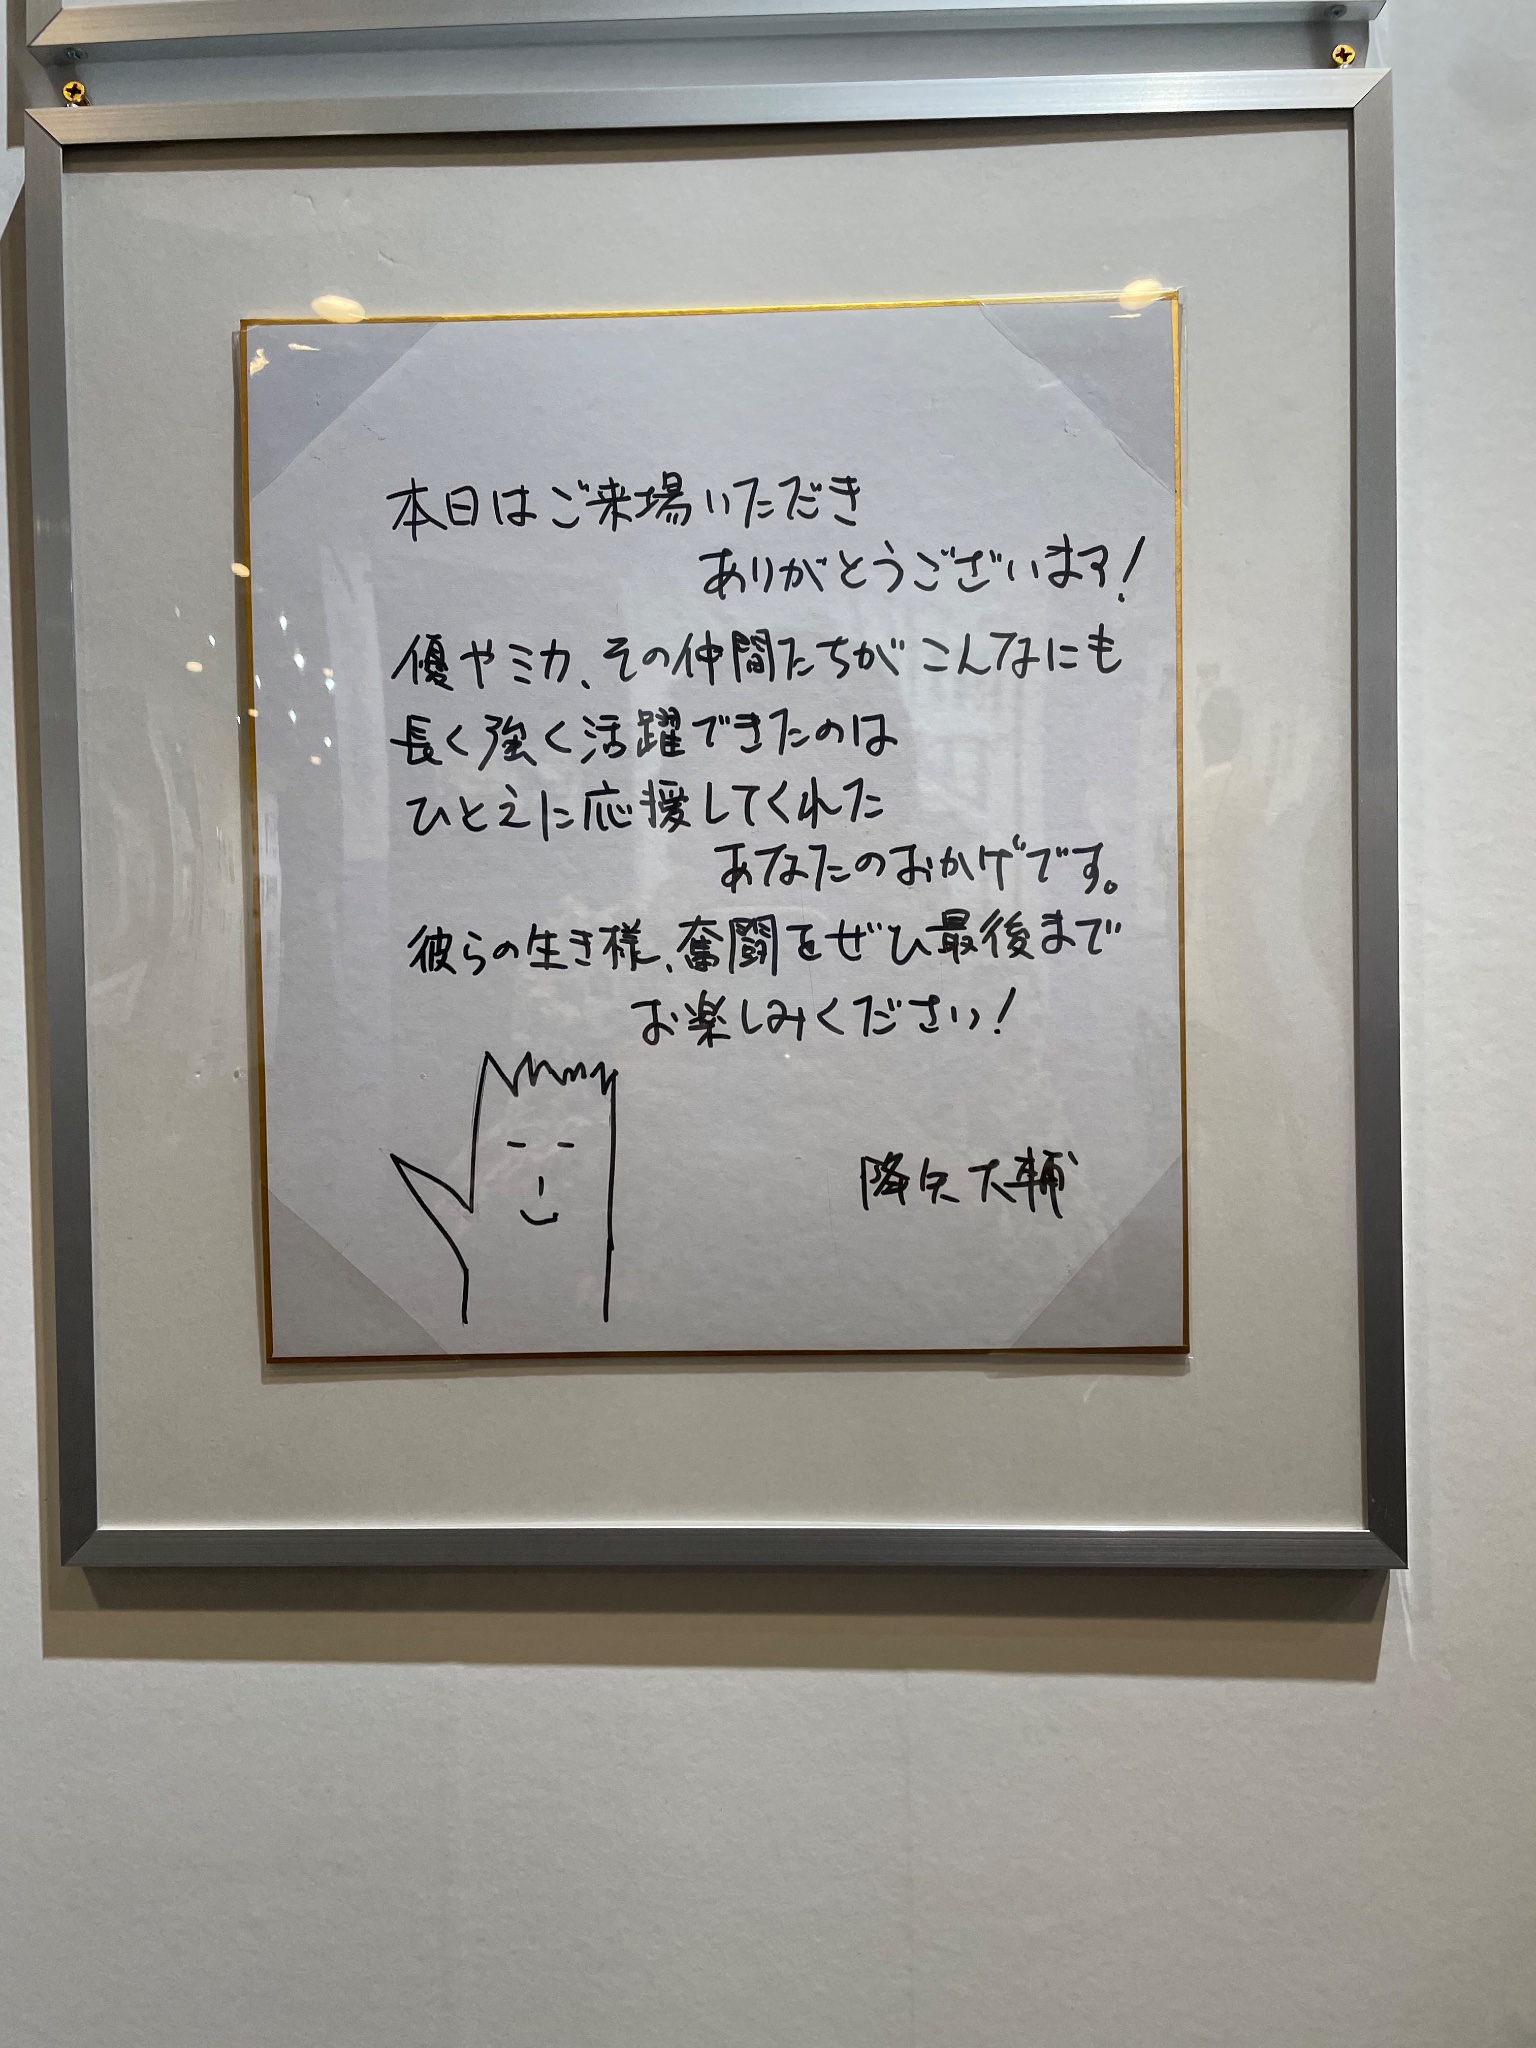 本日はご来場いただき
ありがとうございます!
優やミカ、その仲間たちがこんなにも
長く強く活躍できたのは
ひとえに応援してくれた
あなたのおかげです。
彼らの生き様、奮闘をぜひ最後まで
お楽しみください!
降矢大輔